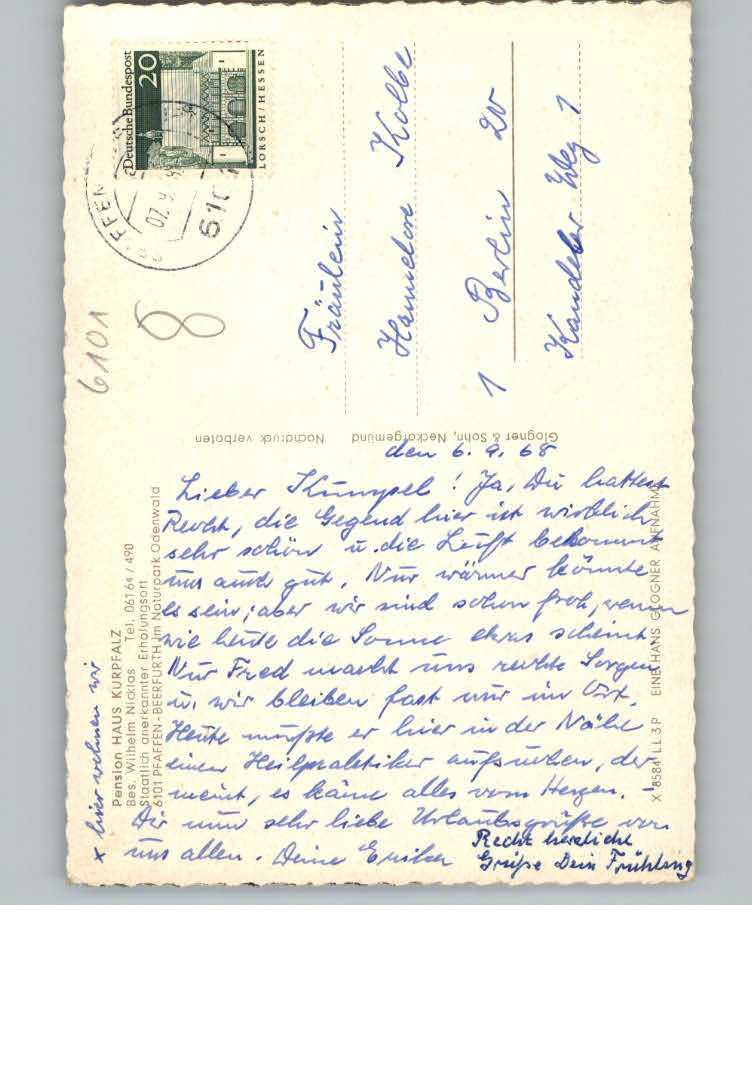 Deutsche Bundespost
20
LORSCH/HESSEN
07. 9.
610
6101
8
Fräulein
Hannelore Kolbe
1 Berlin 20
Kandeler Weg 1
Glogner & Sohn, Neckargemünd Nachdruck verboten
Pension HAUS KURPFALZ
Bes. Wilhelm Nicklas Tel. 06164 / 490
Staatlich anerkannter Erholungsort
6101 PFAFFEN-BEERFURTH im Naturpark Odenwald
x hier wohnen wir
X 8584 LL 3 P EINE HANS GLOGNER AUFNAHME
den 6. 9. 68
Lieber Kumpel! Ja, Du hattest
Recht, die Gegend hier ist wirklich
sehr schön u. die Luft bekommt
uns auch gut. Nur wärmer könnte
es sein; aber wir sind schon froh, wenn
wie heute die Sonne etwas scheint.
Nur Fred macht uns rechte Sorgen
u. wir bleiben fast nur im Ort.
Heute mußte er hier in der Nähe
einen Heilpraktiker aufsuchen, der
meint, es käme alles vom Herzen. -
Dir nun sehr liebe Urlaubsgrüße von
uns allen. Deine Erika
Recht herzliche
Grüße Dein Frühling